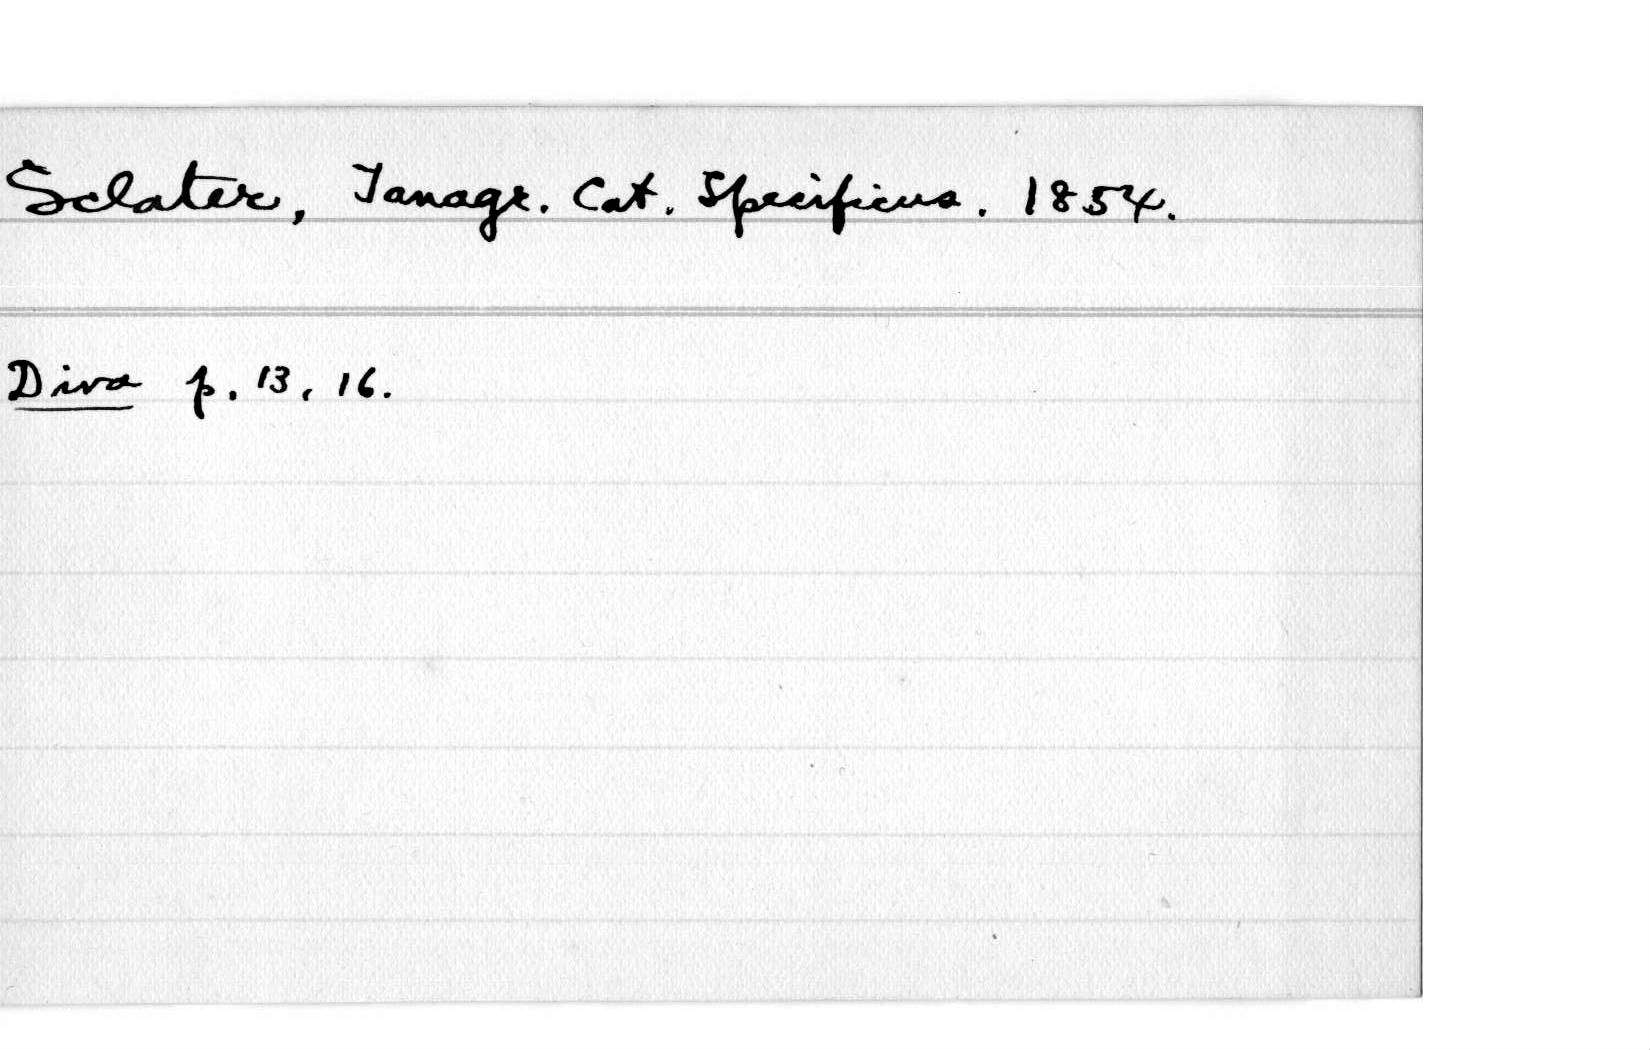 Sclater, Tanagr. Cat. Specificus. 1854.
Diva p. 13, 16.